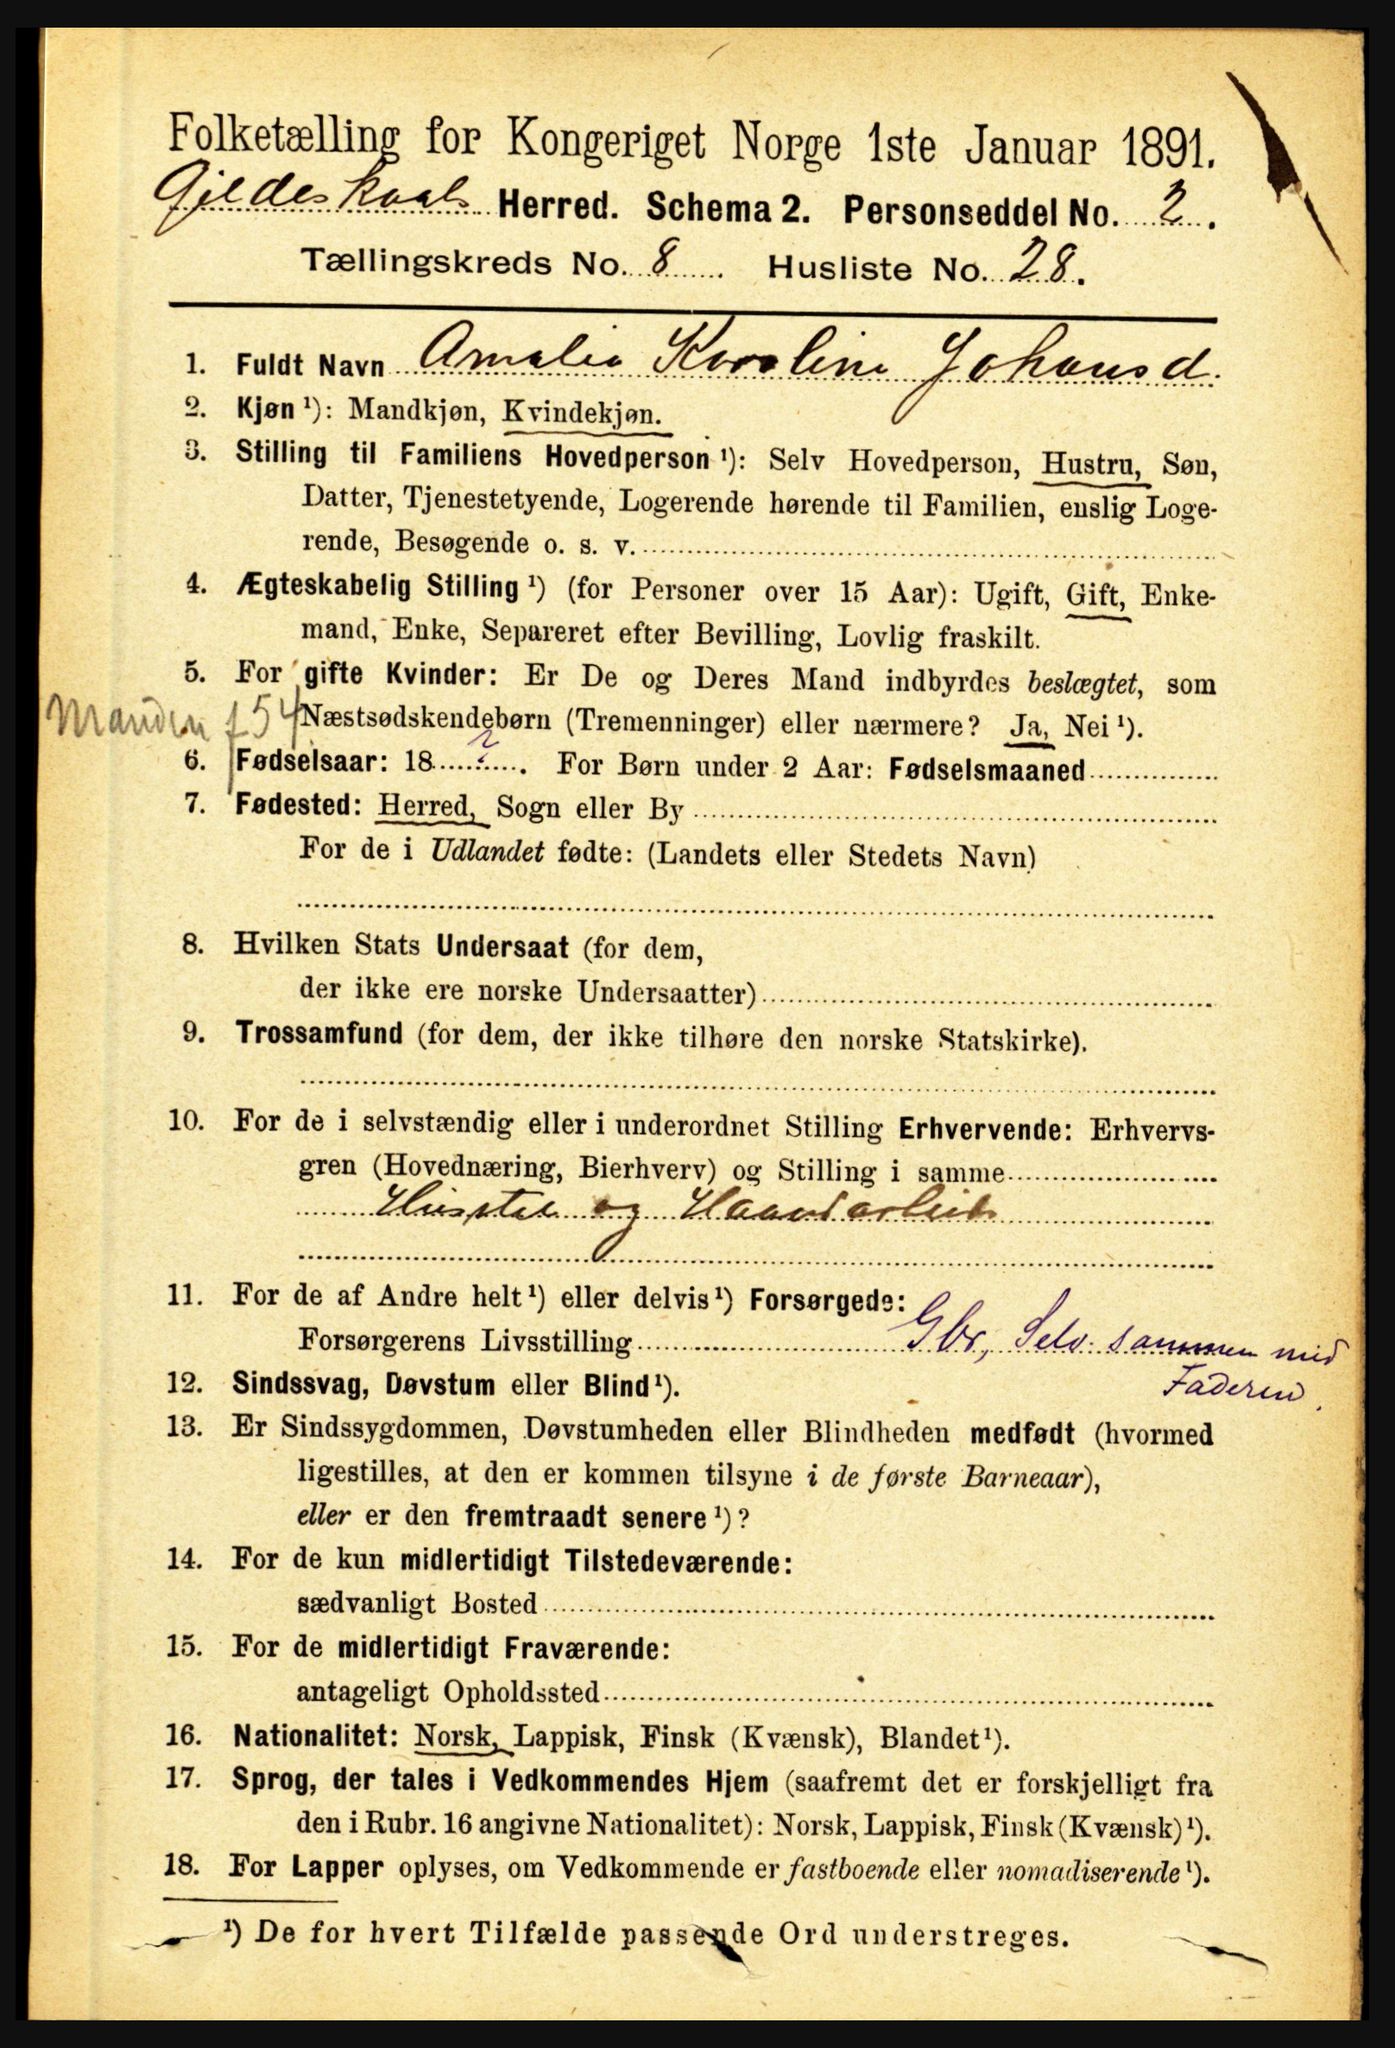 Folketælling for Kongeriget Norge 1ste Januar 1891.
Gildeskaals Herred. Schema 2. Personseddel No. 2.
Tællingskreds No. 8 Husliste No. 28.
1. Fuldt Navn Amalia Karoline Johansd.
2. Kjøn ¹): Mandkjøn, Kvindekjøn.
3. Stilling til Familiens Hovedperson ¹): Selv Hovedperson, Hustru, Søn,
Datter, Tjenestetyende, Logerende hørende til Familien, enslig Loge-
rende, Besøgende o. s. v.
4. Ægteskabelig Stilling ¹) (for Personer over 15 Aar): Ugift, Gift, Enke-
mand, Enke, Separeret efter Bevilling, Lovlig fraskilt.
5. For gifte Kvinder: Er De og Deres Mand indbyrdes beslægtet, som
Manden f 54 Næstsødskendebørn (Tremenninger) eller nærmere? Ja, Nei ¹).
6. Fødselsaar: 18 ? . For Børn under 2 Aar: Fødselsmaaned
7. Fødested: Herred, Sogn eller By
For de i Udlandet fødte: (Landets eller Stedets Navn)
8. Hvilken Stats Undersaat (for dem,
der ikke ere norske Undersaatter)
9. Trossamfund (for dem, der ikke tilhøre den norske Statskirke).
10. For de i selvstændig eller i underordnet Stilling Erhvervende: Erhvervs-
gren (Hovednæring, Bierhverv) og Stilling i samme
Husstel og Haandarbeide
11. For de af Andre helt ¹) eller delvis ¹) Forsørgede:
Forsørgerens Livsstilling Gbr, Selv. sammen med
12. Sindssvag, Døvstum eller Blind ¹). Faderen.
13. Er Sindssygdommen, Døvstumheden eller Blindheden medfødt (hvormed
ligestilles, at den er kommen tilsyne i de første Barneaar),
eller er den fremtraadt senere ¹)?
14. For de kun midlertidigt Tilstedeværende:
sædvanligt Bosted
15. For de midlertidigt Fraværende:
antageligt Opholdssted
16. Nationalitet: Norsk, Lappisk, Finsk (Kvænsk), Blandet ¹).
17. Sprog, der tales i Vedkommendes Hjem (saafremt det er forskjelligt fra
den i Rubr. 16 angivne Nationalitet): Norsk, Lappisk, Finsk (Kvænsk) ¹).
18. For Lapper oplyses, om Vedkommende er fastboende eller nomadiserende ¹).
¹) De for hvert Tilfælde passende Ord understreges.